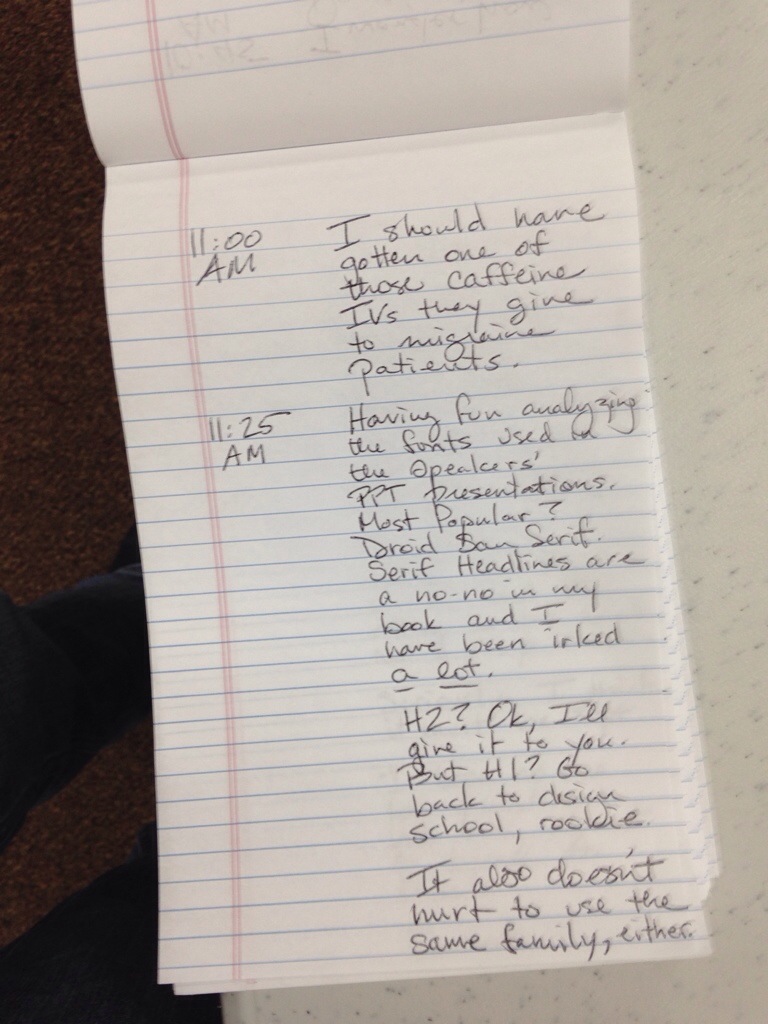 11:00 I should have
AM gotten one of
those caffeine
IVs they give
to migraine
patients.
11:25 Having fun analyzing
AM the fonts used in
the speakers'
PPT presentations.
Most Popular?
Droid San Serif.
Serif Headlines are
a no-no in my
book and I
have been irked
a lot.
H2? Ok, I'll
give it to you.
But H1? Go
back to design
school, rookie.
It also doesn't
hurt to use the
same family, either.